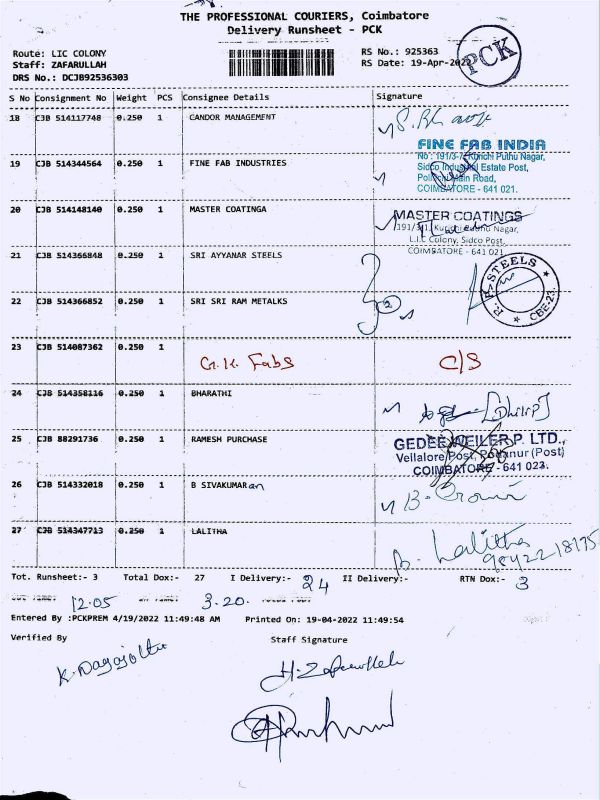 THE PROFESSIONAL COURIERS, Coimbatore
Delivery Runsheet - PCK
Route: LIC COLONY
Staff: ZAFARULLAH
DRS No.: DCJB92536303
RS No.: 925363
RS Date: 19-Apr-2022
PCK
S No Consignment No Weight PCS Consignee Details Signature
18 CJB 514117748 0.250 1 CANDOR MANAGEMENT
19 CJB 514344564 0.250 1 FINE FAB INDUSTRIES
FINE FAB INDIA
No : 191/3-7, Kurichi Puthu Nagar,
Sidco Industrial Estate Post,
Pollachi Main Road,
COIMBATORE - 641 021.
20 CJB 514148140 0.250 1 MASTER COATINGA
MASTER COATINGS
191/3, Kurichi Puthu Nagar,
L.I.C Colony, Sidco Post,
COIMBATORE - 641 021
21 CJB 514366848 0.250 1 SRI AYYANAR STEELS
STEELS
CBE-23.
22 CJB 514366852 0.250 1 SRI SRI RAM METALKS
2
23 CJB 514087362 0.250 1 G.K. Fabs C/S
24 CJB 514358116 0.250 1 BHARATHI [DhiliP]
25 CJB 88291736 0.250 1 RAMESH PURCHASE
GEDEE WEILER P. LTD.,
Vellalore Post, Podanur (Post)
COIMBATORE - 641 023.
26 CJB 514332018 0.250 1 B SIVAKUMARan
27 CJB 514347713 0.250 1 LALITHA
Lalitha
9842218175
Tot. Runsheet:- 3 Total Dox:- 27 I Delivery:- 24 II Delivery:- RTN Dox:- 3
12.05 3.20.
Entered By :PCKPREM 4/19/2022 11:49:48 AM Printed On: 19-04-2022 11:49:54
Verified By Staff Signature
H. Zafarullah